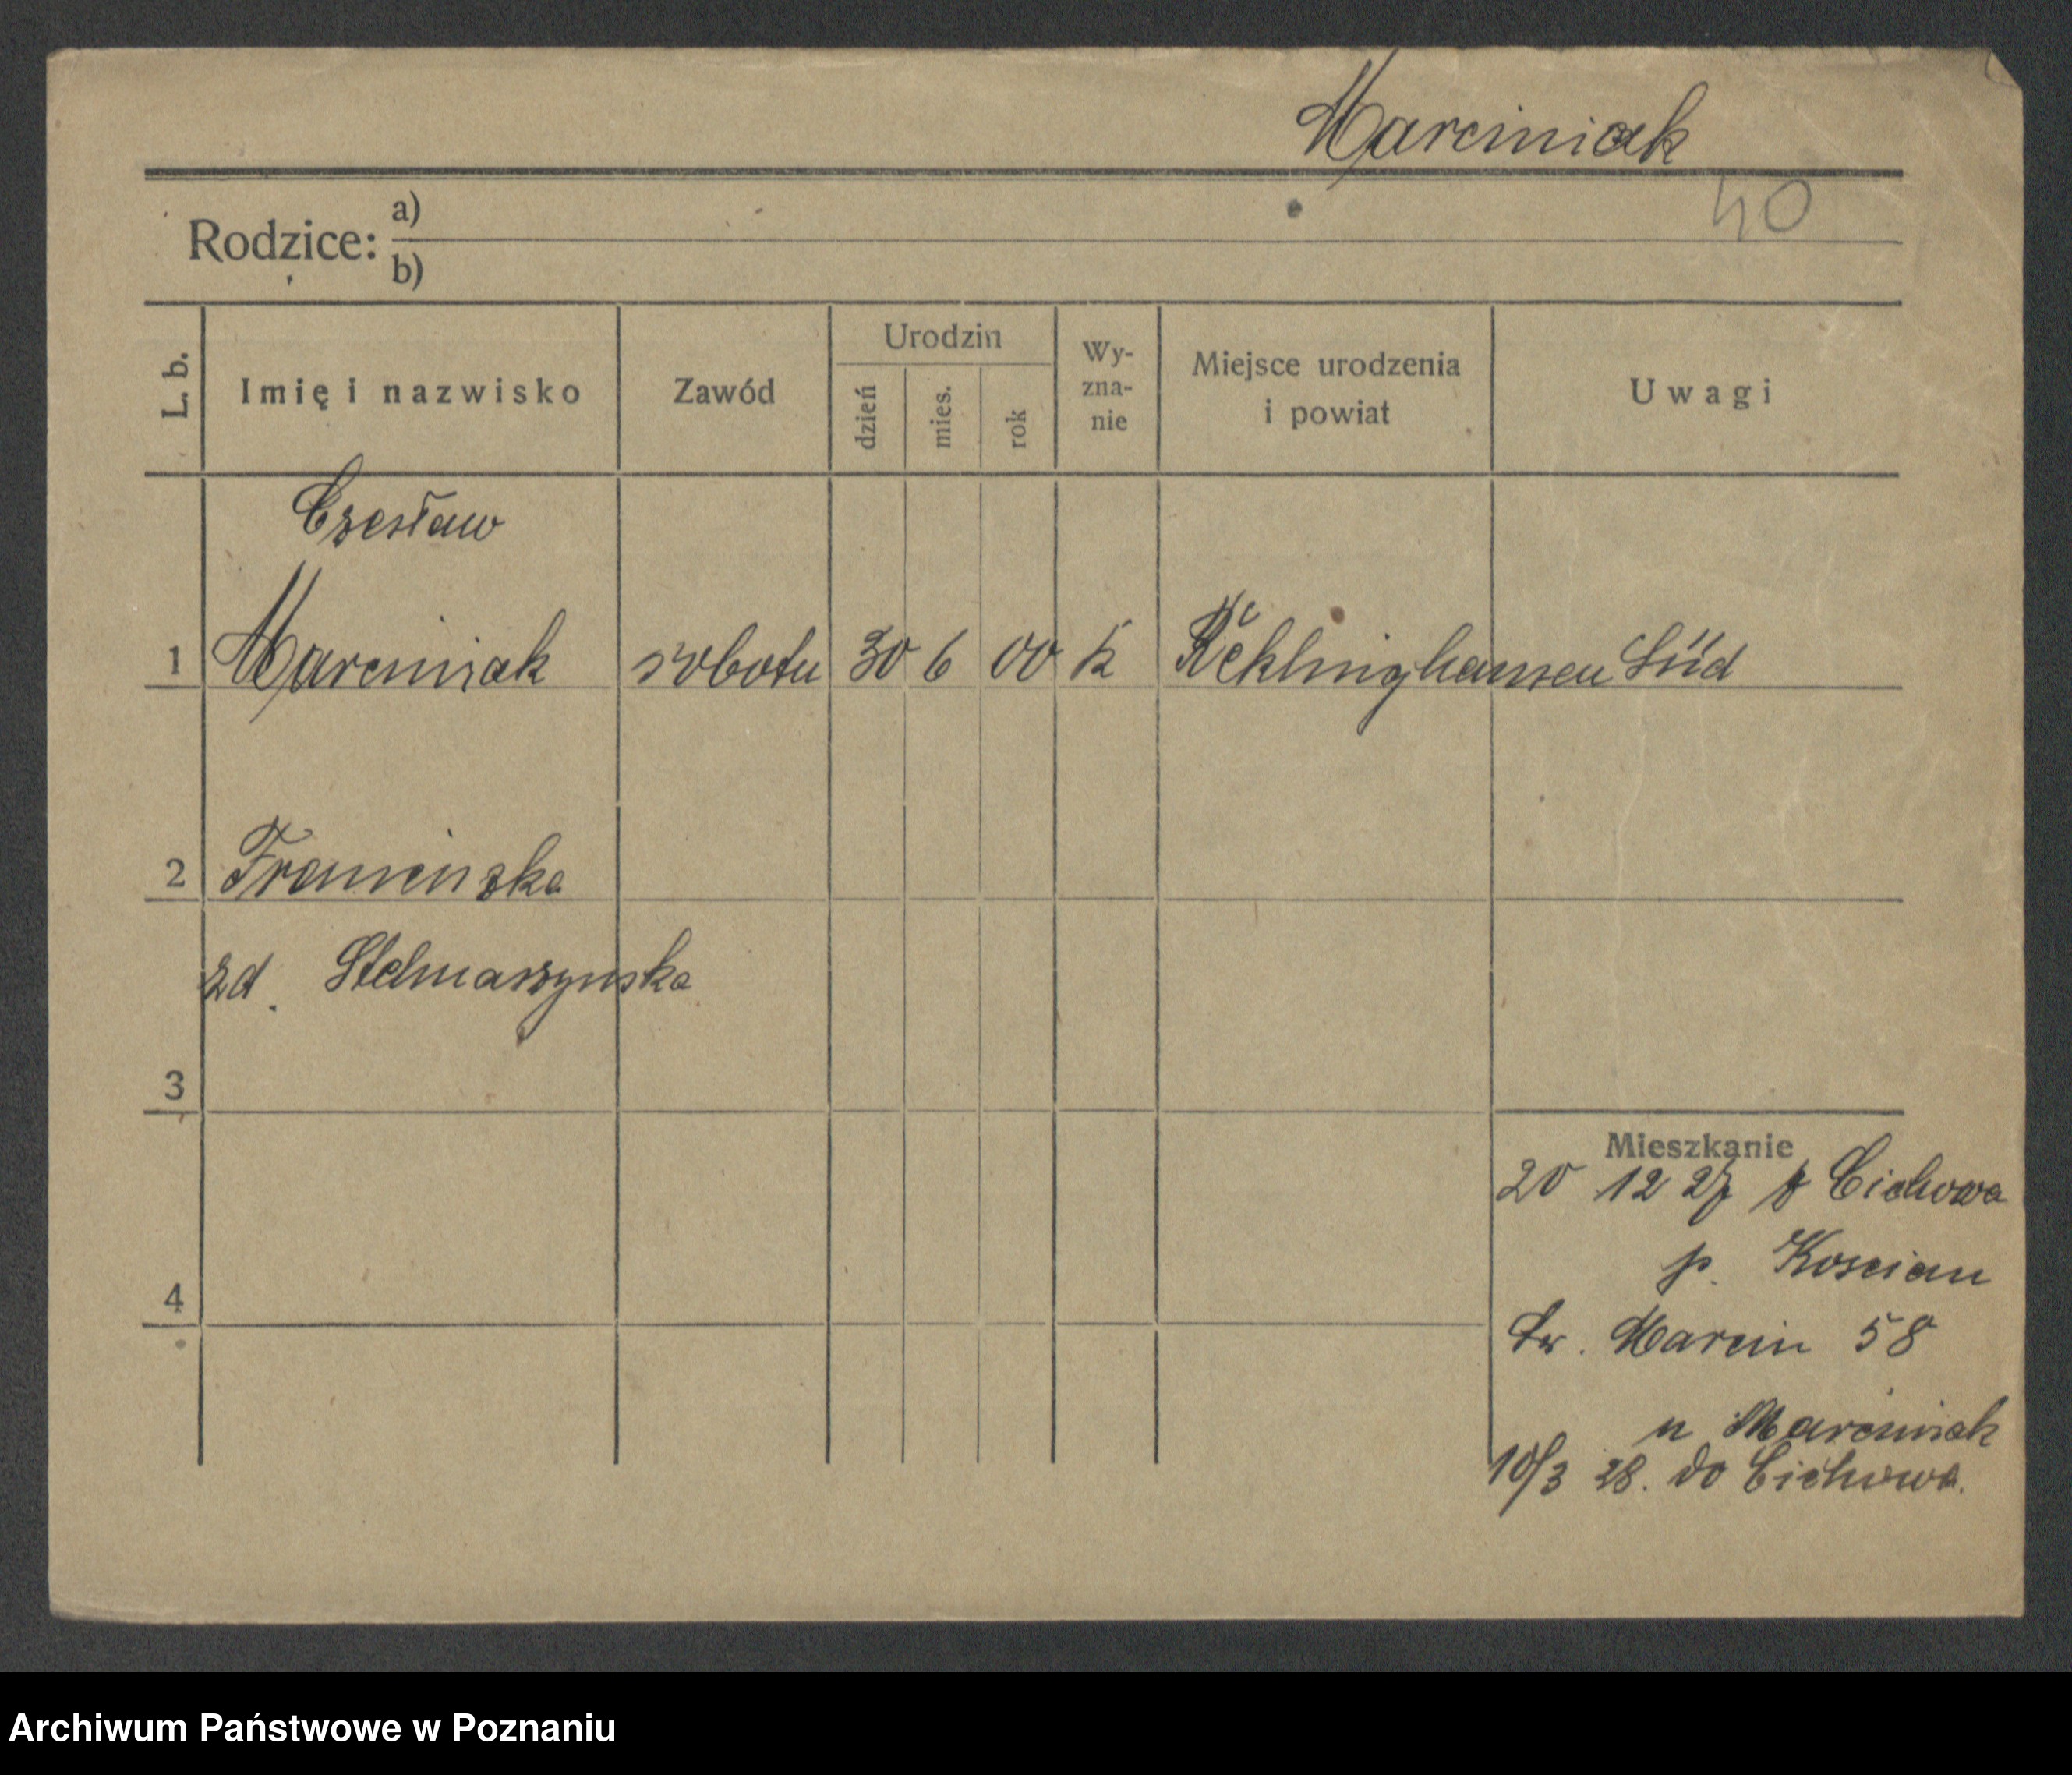 Marciniak
40
Rodzice: a)
b)
L. b. Imię i nazwisko Zawód Urodzin dzień mies. rok Wy-zna-nie Miejsce urodzenia i powiat Uwagi
Czesław
1 Marciniak robotn 30 6 00 K Reklinghausen Süd
2 Franciszka
zd. Stelmaszynska
3
Mieszkanie
20 12 27 z Cichowa
p. Koscian
4
Św. Marcin 58
u Marciniak
10/3 28. do Cichowa.
Archiwum Państwowe w Poznaniu